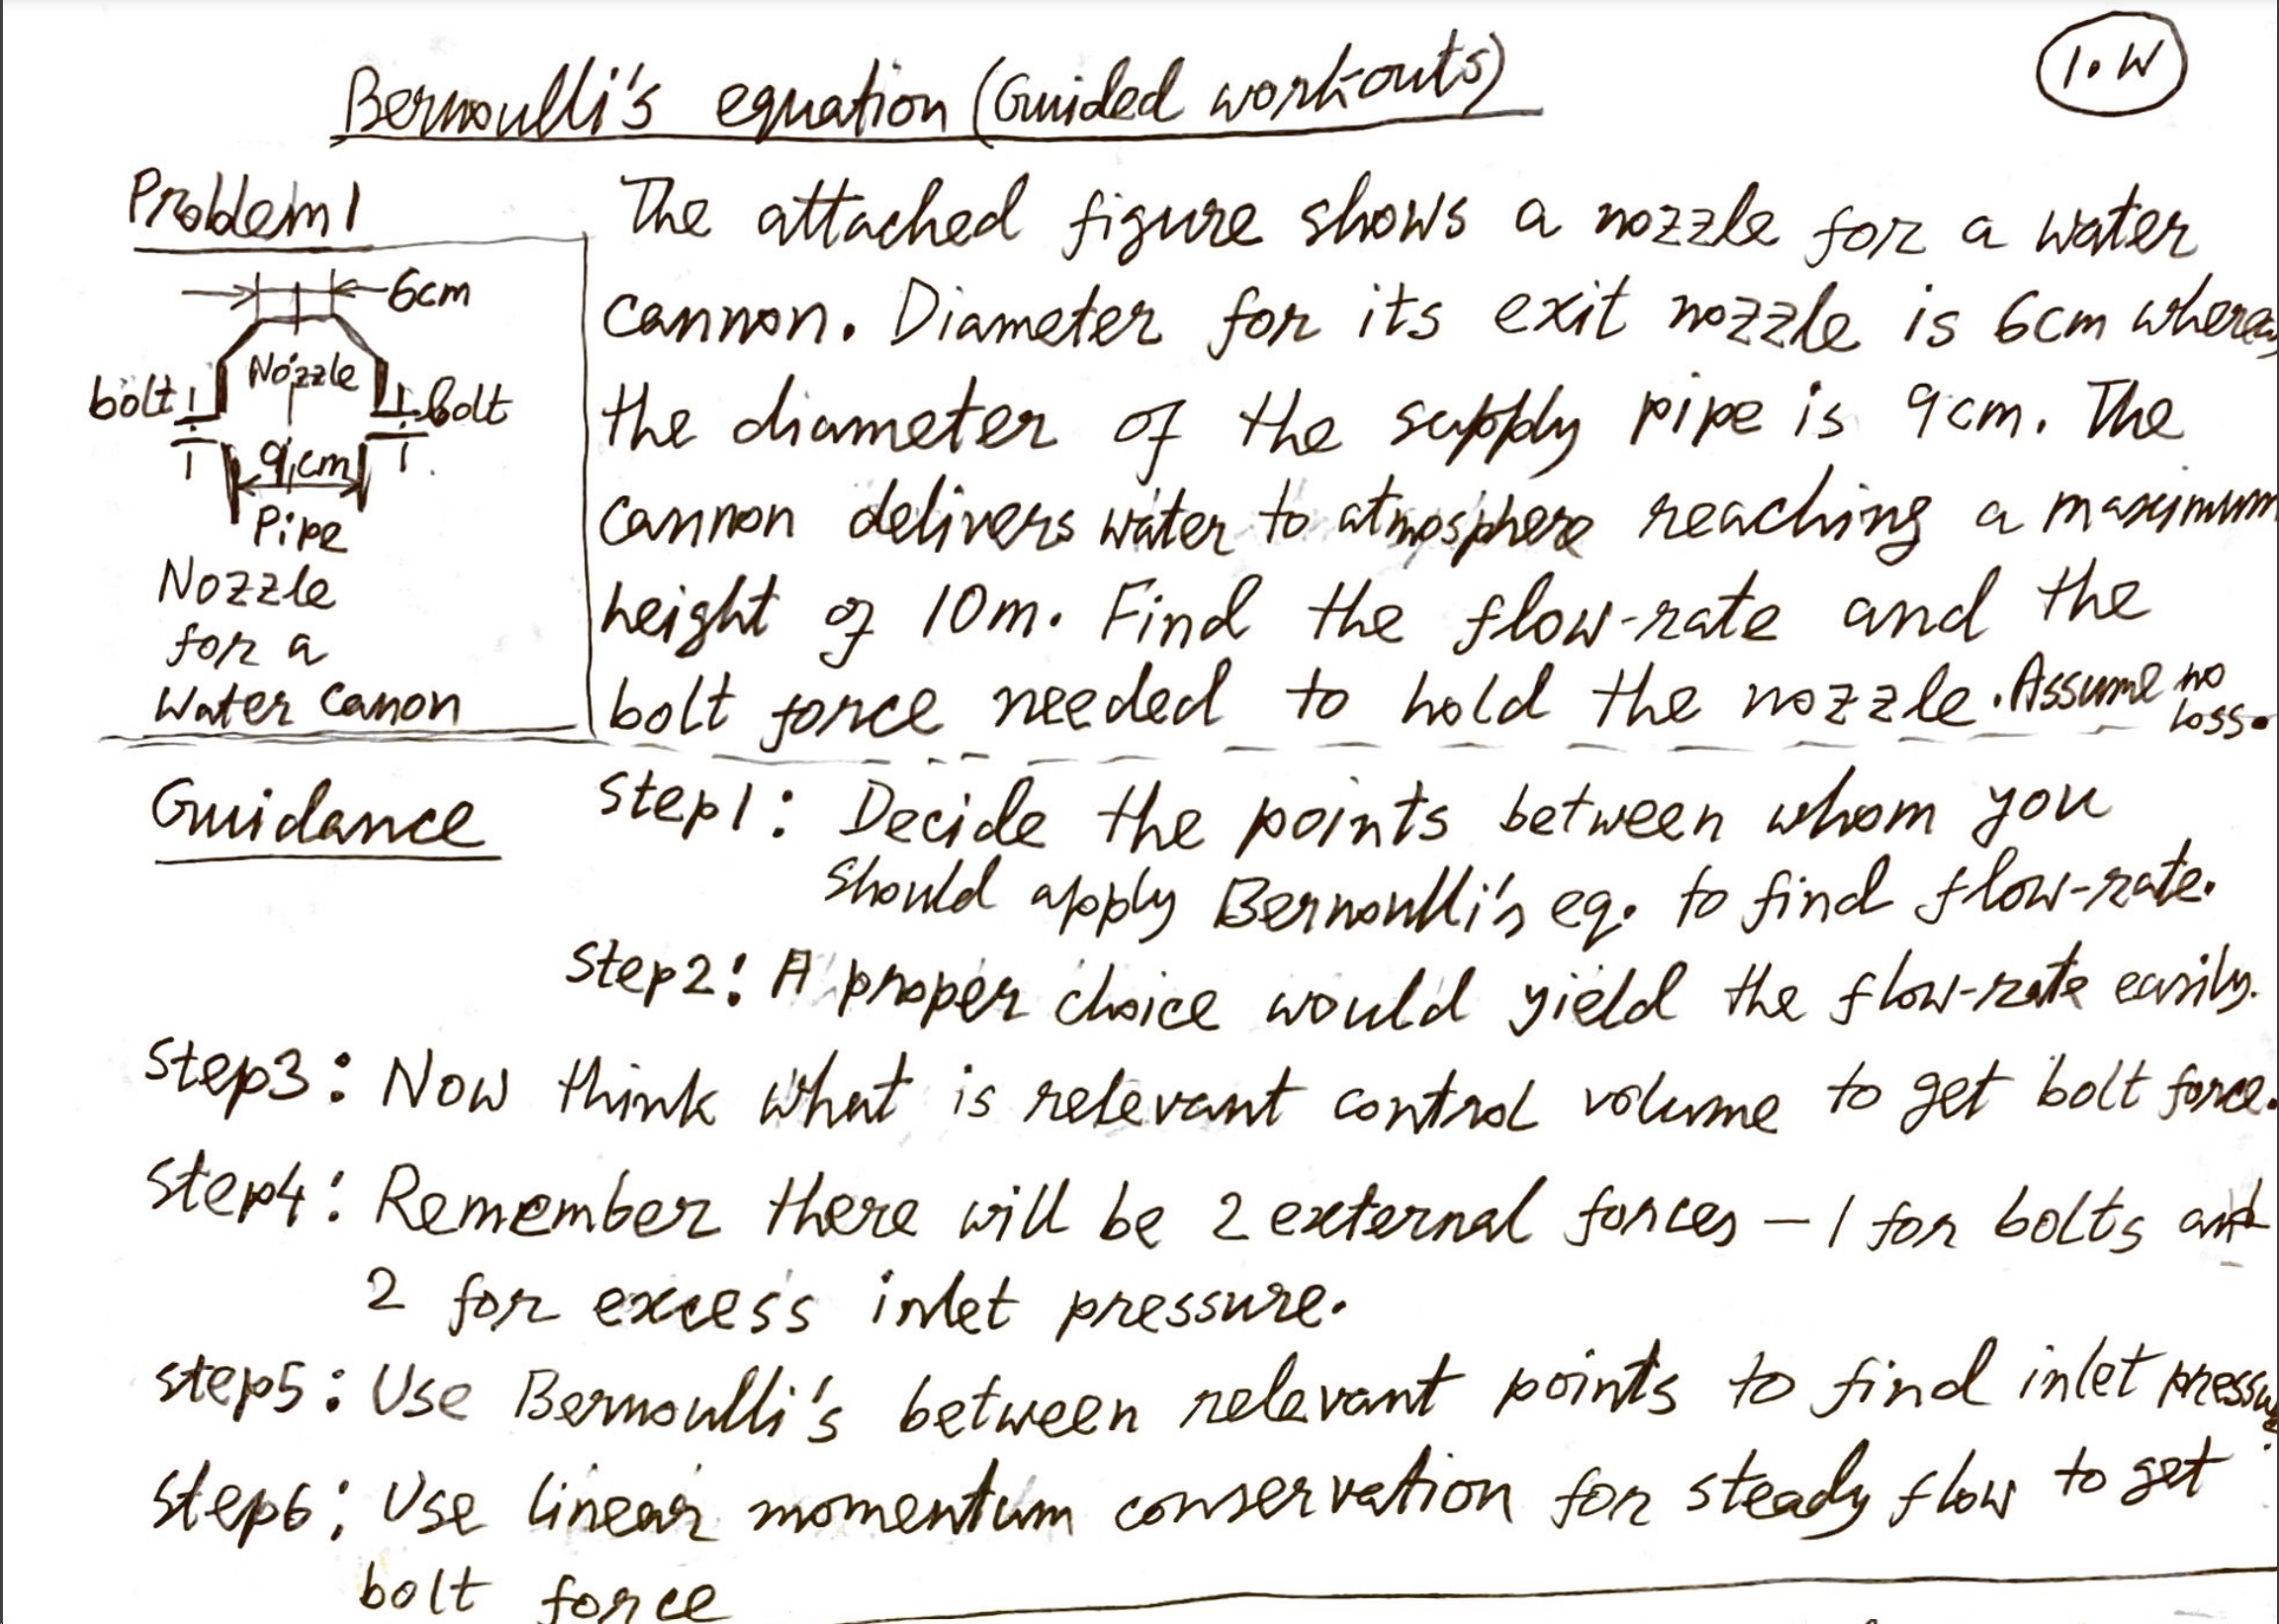 1.W
Bernoulli's equation (Guided workouts)
Problem 1
6cm
Nozzle
bolt
bolt
9cm
Pipe
Nozzle
for a
Water Canon
The attached figure shows a nozzle for a water
cannon. Diameter for its exit nozzle is 6cm whereas
the diameter of the supply pipe is 9cm. The
cannon delivers water to atmosphere reaching a maximum
height of 10m. Find the flow-rate and the
bolt force needed to hold the nozzle. Assume no loss.
Guidance
Step1: Decide the points between whom you
should apply Bernoulli's eq. to find flow-rate.
Step2: A proper choice would yield the flow-rate easily.
Step3: Now think what is relevant control volume to get bolt force.
Step4: Remember there will be 2 external forces – 1 for bolts and
2 for excess inlet pressure.
Step5: Use Bernoulli's between relevant points to find inlet pressure.
Step6: Use linear momentum conservation for steady flow to get
bolt force